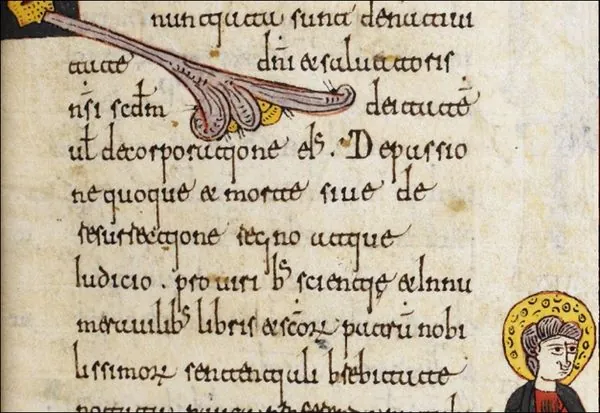 nuntiata sunt de nativi
tate dn̄i & salvatoris
nr̄i scdm̄ deitatē
ul̄ de corporatione eī. De passio
ne quoque & morte sive de
resurrectione regno atque
iudicio. pro virib; scientię & Innu
meravilib; libris & scōrꝝ patrū nobi
lissimorꝝ sententiali brebitate